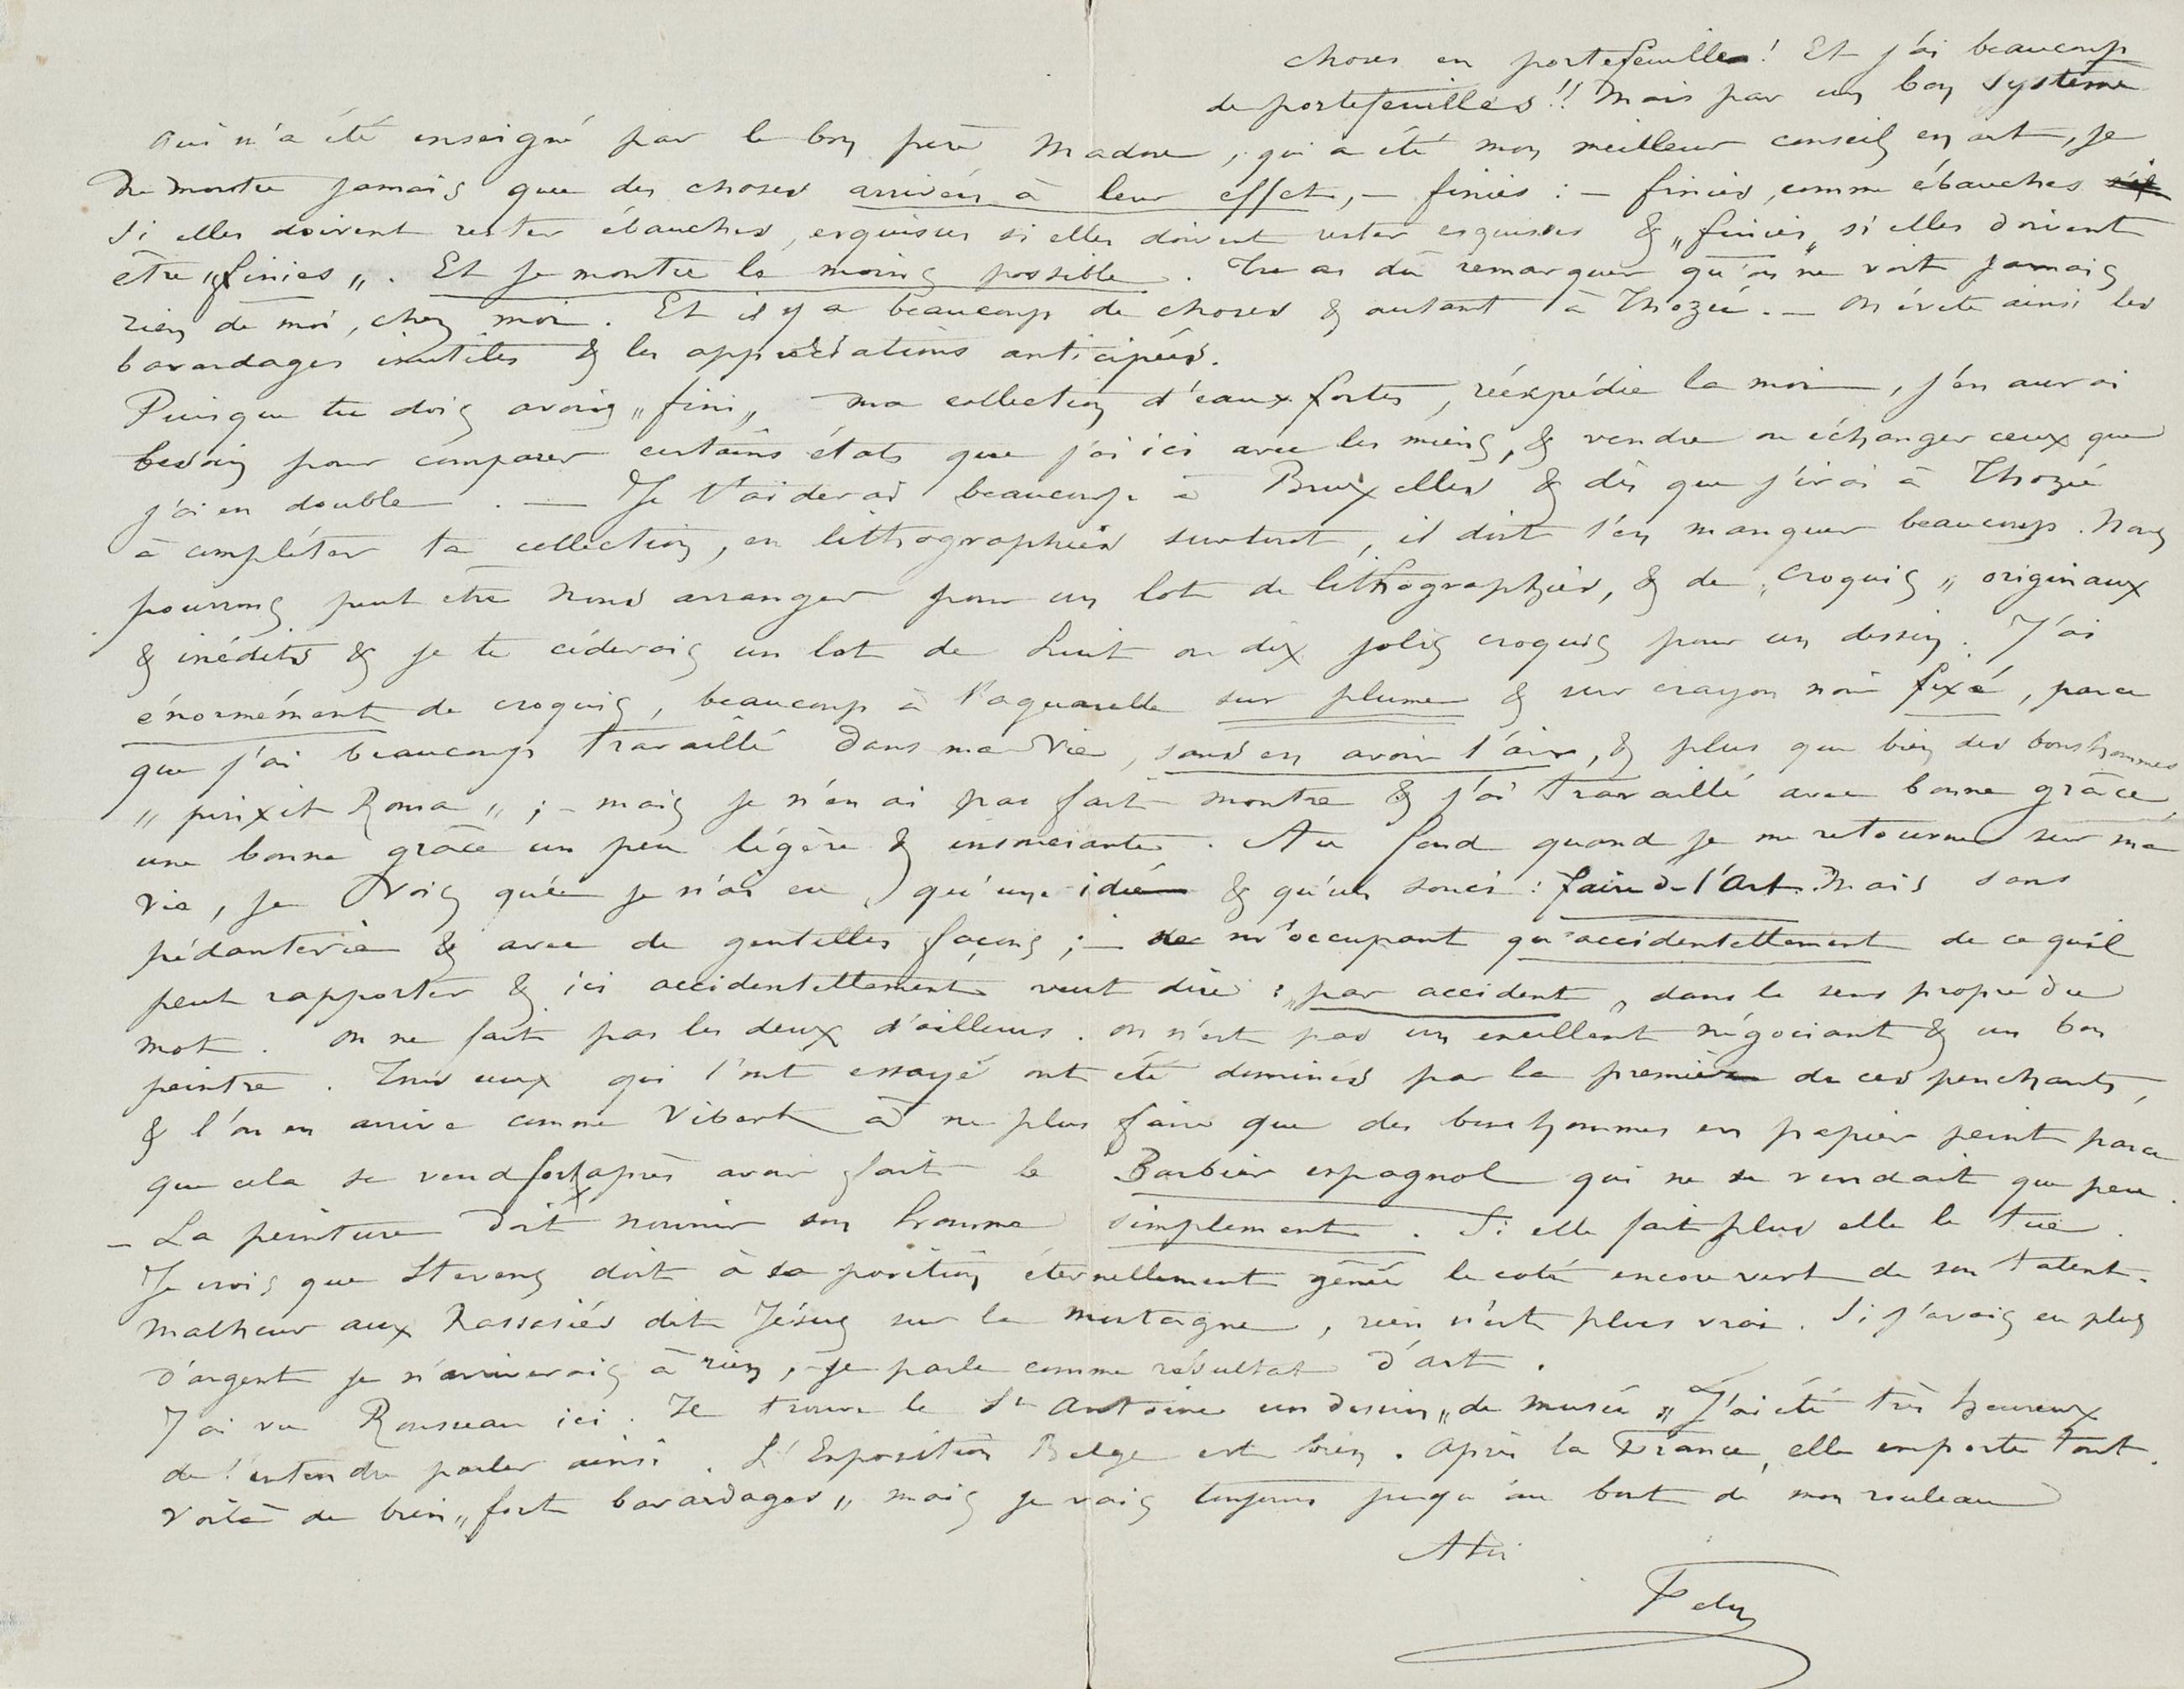 choses en portefeuilles! Et j'ai beaucoup
de portefeuilles!! Mais par un bon système
qui m'a été enseigné par le bon père Madou, qui a été mon meilleur conseil en art, je
ne montre jamais que des choses arrivées à leur effet, – finies : – finies, comme ébauches
si elles doivent rester ébauches, esquisses si elles doivent rester esquisses & „finies„ si elles doivent
être „finies„. Et je montre le moins possible. Tu as dû remarquer qu'on ne voit jamais
rien de moi, chez moi. Et il y a beaucoup de choses & autant à Thozée. – On évite ainsi les
bavardages inutiles & les appréciations anticipées.
Puisque tu dois avoir „fini„ ma collection d'eaux fortes, réexpédie la moi, j'en aurai
besoin pour comparer certains états que j'ai ici avec les miens, & vendre ou échanger ceux que
j'ai en double. – Je t'aiderai beaucoup à Bruxelles & dès que j'irai à Thozée
à compléter ta collection, en lithographies surtout, il doit t'en manquer beaucoup. Nous
pourrons peut être nous arranger pour un lot de lithographies, & de „croquis„ originaux
& inédits & je te céderais un lot de huit ou dix jolis croquis pour un dessin. J'ai
énormément de croquis, beaucoup à l'aquarelle sur plume & sur crayon noir fixé, parce
que j'ai beaucoup travaillé dans ma vie, sans en avoir l'air, & plus que bien des bonshommes
„pinxit Roma„ ; – mais je n'en ai pas fait montre & j'ai travaillé avec bonne grâce,
une bonne grâce un peu légère & insouciante. Au fond quand je me retourne sur ma
vie, je vois que je n'ai eu qu'une idée & qu'un souci : faire de l'Art. Mais sans
pédanterie & avec de gentilles façons ; – ne m'occupant qu'accidentellement de ce qu'il
peut rapporter & ici accidentellement veut dire : „par accident„ dans le sens propre du
mot. On ne fait pas les deux d'ailleurs. On n'est pas un excellent négociant & un bon
peintre. Tous ceux qui l'ont essayé ont été dominés par le premier de ces penchants,
& l'on en arrive comme Vibert à ne plus faire que des bonshommes en papier peint parce
que cela se vend fort après avoir fait le Barbier espagnol qui ne se vendait que peu.
– La peinture doit nourrir son homme simplement. Si elle fait plus elle le tue.
Je crois que Stevens doit à sa position éternellement gênée le coté encore vert de son talent.
Malheur aux Rassasiés dit Jésus sur la montagne, rien n'est plus vrai. Si j'avais eu plus
d'argent je n'arriverais à rien, – je parle comme résultat d'art.
J'ai vu Rousseau ici. Il trouve le St Antoine un dessin „de musée„ J'ai été très heureux
de l'entendre parler ainsi. L'Exposition Belge est bien. Après la France, elle emporte tout.
Voilà de bien „fort bavardages„ mais je vais toujours jusqu'au bout de mon rouleau
A toi
Fély